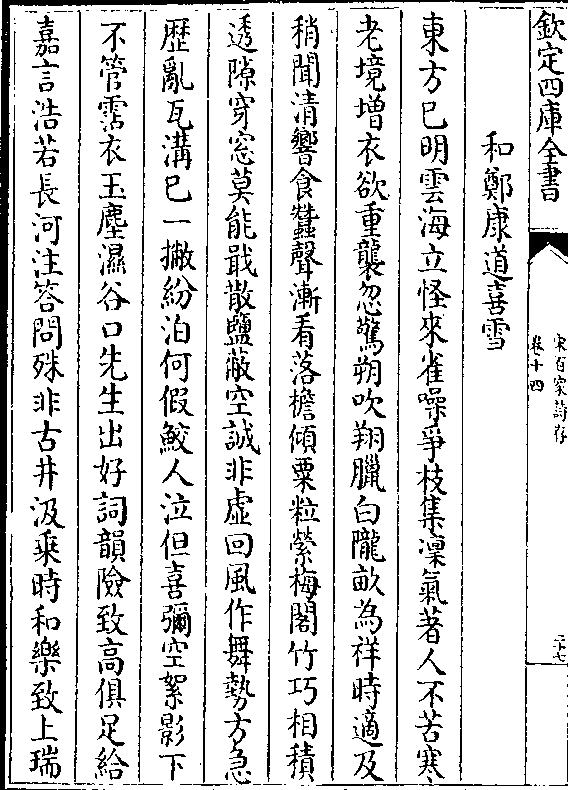 欽定四庫全書
宋百家詩存
卷十四
二十七
和鄭康道喜雪
東方已明雲海立怪來雀噪爭枝集凜氣著人不苦寒
老境增衣欲重襲忽驚朔吹翔臘白隴畝為祥時適及
稍聞清響食蠶聲漸看落檐傾粟粒縈梅閣竹巧相積
透隙穿窓莫能戢散鹽蔽空誠非虛回風作舞勢方急
歴亂瓦溝已一撇紛泊何假鮫人泣但喜彌空絮影下
不管霑衣玉塵濕谷口先生出好詞韻險致高俱足給
嘉言浩若長河注答問殊非古井汲乗時和樂致上瑞